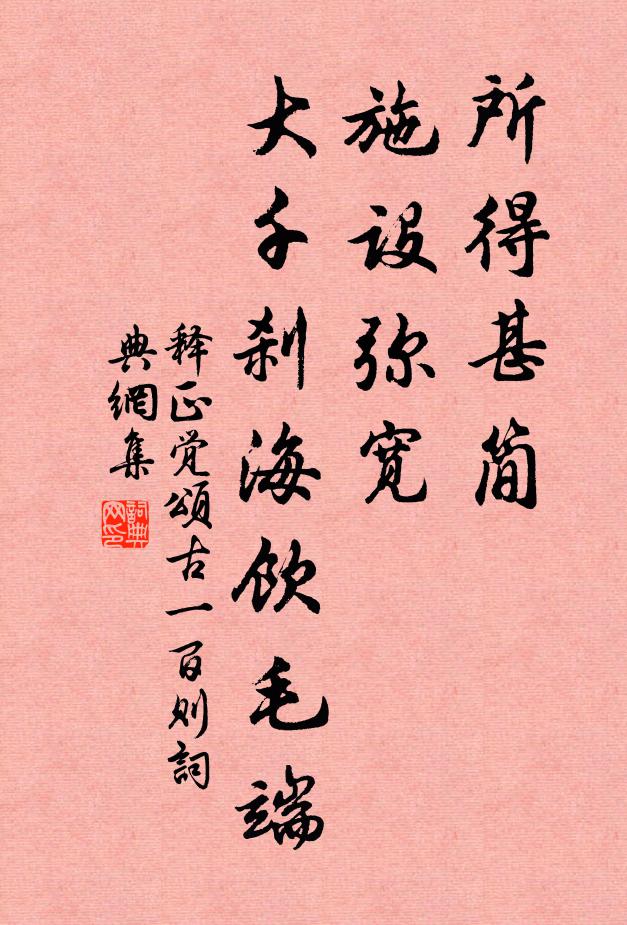 所得甚简
施设弥寬
大千刹海饮毛端
释正觉頌古一百则詞
典網集
詞典网印